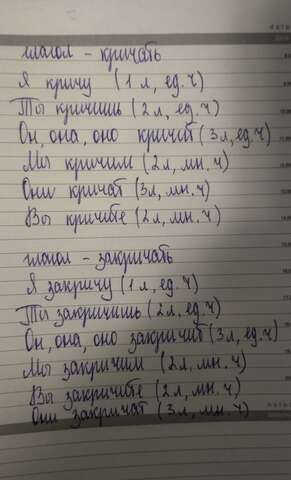 глагол - кричать
Я кричу (1 л, ед. ч)
Ты кричишь (2 л, ед. ч)
Он, она, оно кричит (3 л, ед. ч
Мы кричим (2 л, мн. ч)
Они кричат (3 л, мн. ч)
Вы кричите (2 л, мн. ч)
глагол - закричать
Я закричу (1 л, ед. ч)
Ты закричишь (2 л, ед. ч)
Он, она, оно закричит (3 л, ед. ч)
Мы закричим (2 л, мн. ч)
Вы закричите (2 л, мн. ч)
Они закричат (3 л, мн. ч)